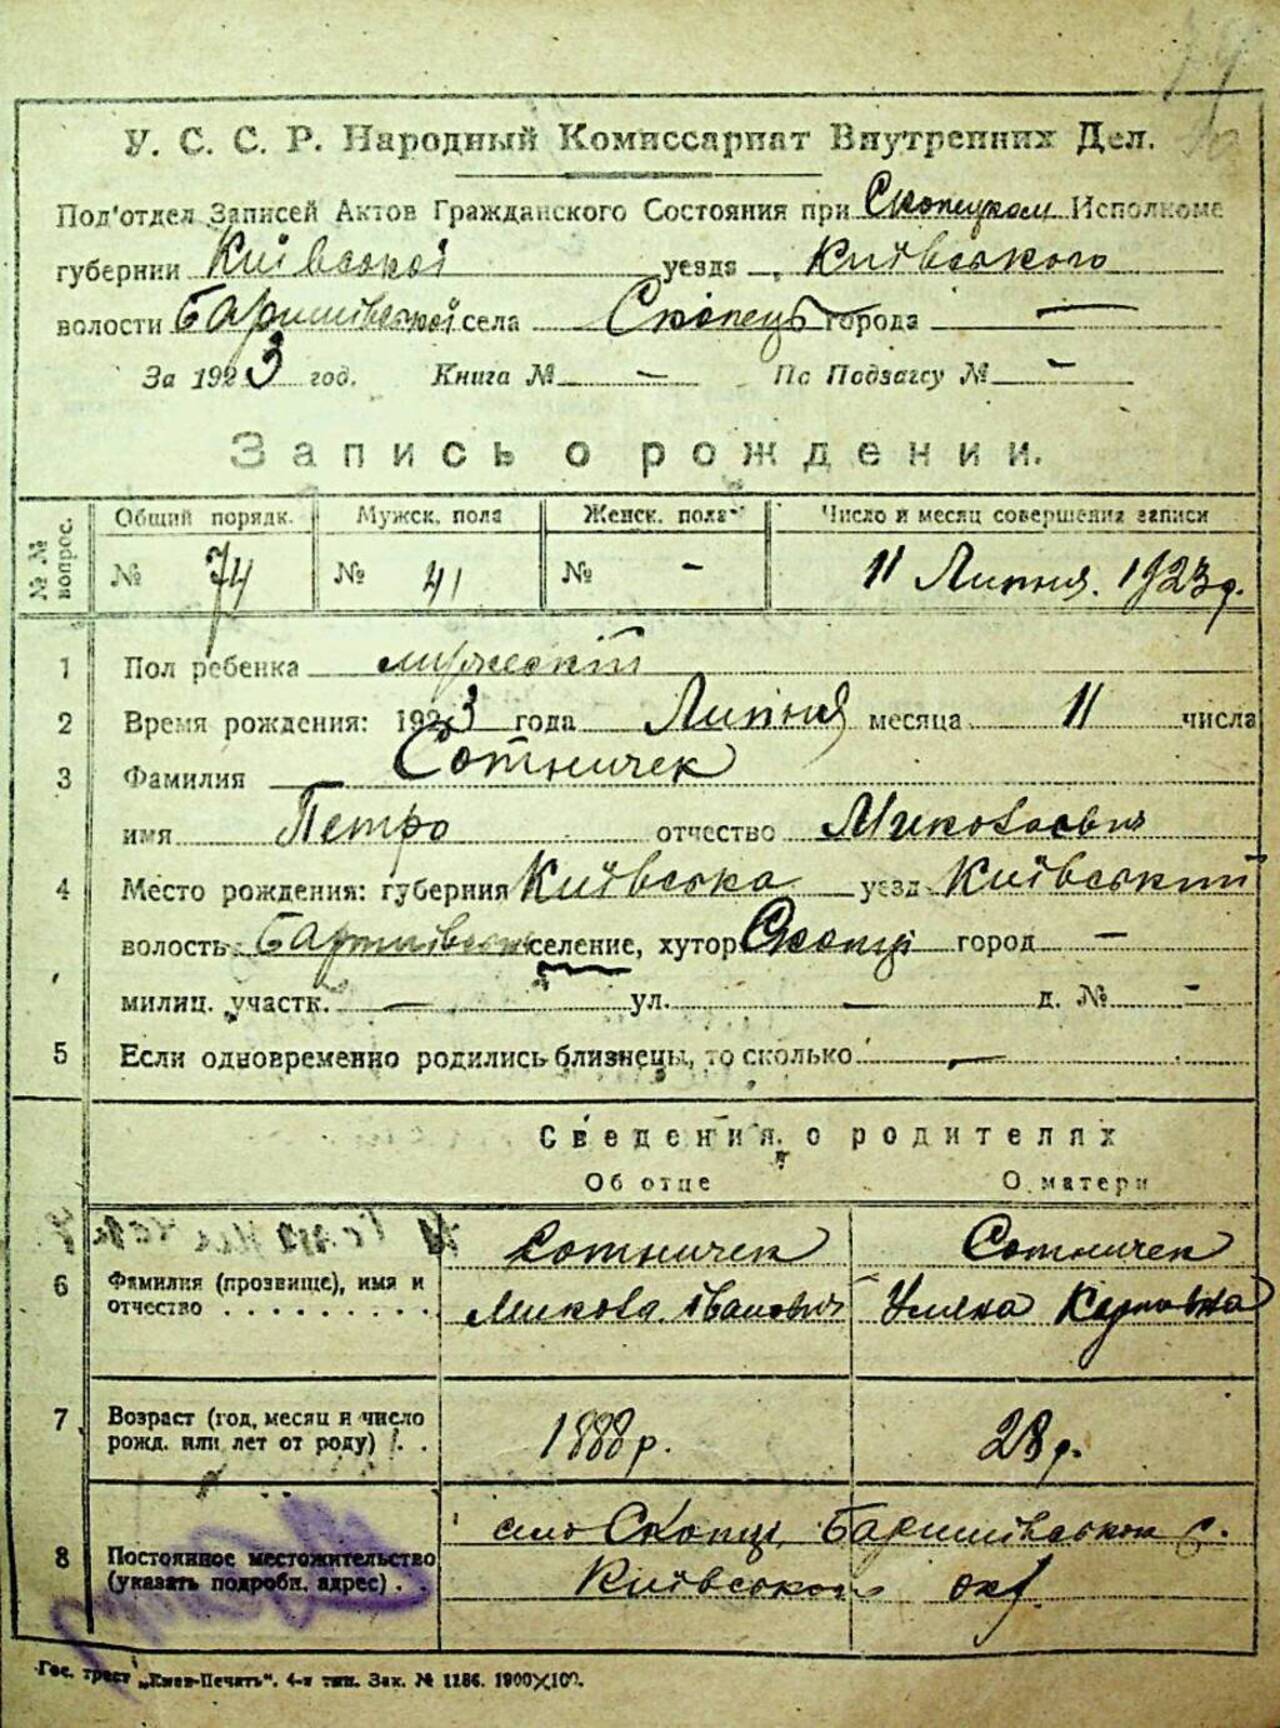 У. С. С. Р. Народный Комиссариат Внутренних Дел.
Под'отдел Записей Актов Гражданского Состояния при Скопецком Исполкоме
губернии Київської уезда Київського
волости Баришівської села Скопець города —
За 1923 год. Книга № — По Подзагсу № —
Запись о рождении.
№№ вопрос. Общий порядк. Мужск. пола Женск. пола Число и месяц совершения записи
№ 74 № 41 № - 11 Липня. 1923 р.
1 Пол ребенка мужеский
2 Время рождения: 1923 года Липня месяца 11 числа
3 Фамилия Сотничек
имя Петро отчество Миколаевич
4 Место рождения: губерния Київська уезд Київський
волость Баришівськ селение, хутор Скопці город —
милиц. участк. — ул. — д. № -
5 Если одновременно родились близнецы, то сколько —
Сведения о родителях
Об отце О матери
Сотничек Сотничек
6 Фамилия (прозвище), имя и
отчество . . . . . . . . . Микола Іванович Уляна Карповна
7 Возраст (год, месяц и число
рожд. или лет от роду) . . 1888 р. 28 р.
село Скопці, Баришівськои
8 Постоянное местожительство
(указать подробн. адрес) . . Київського окр.
Гос. трест „Киев-Печать". 4-я тип. Зак. № 1186. 1900×100.